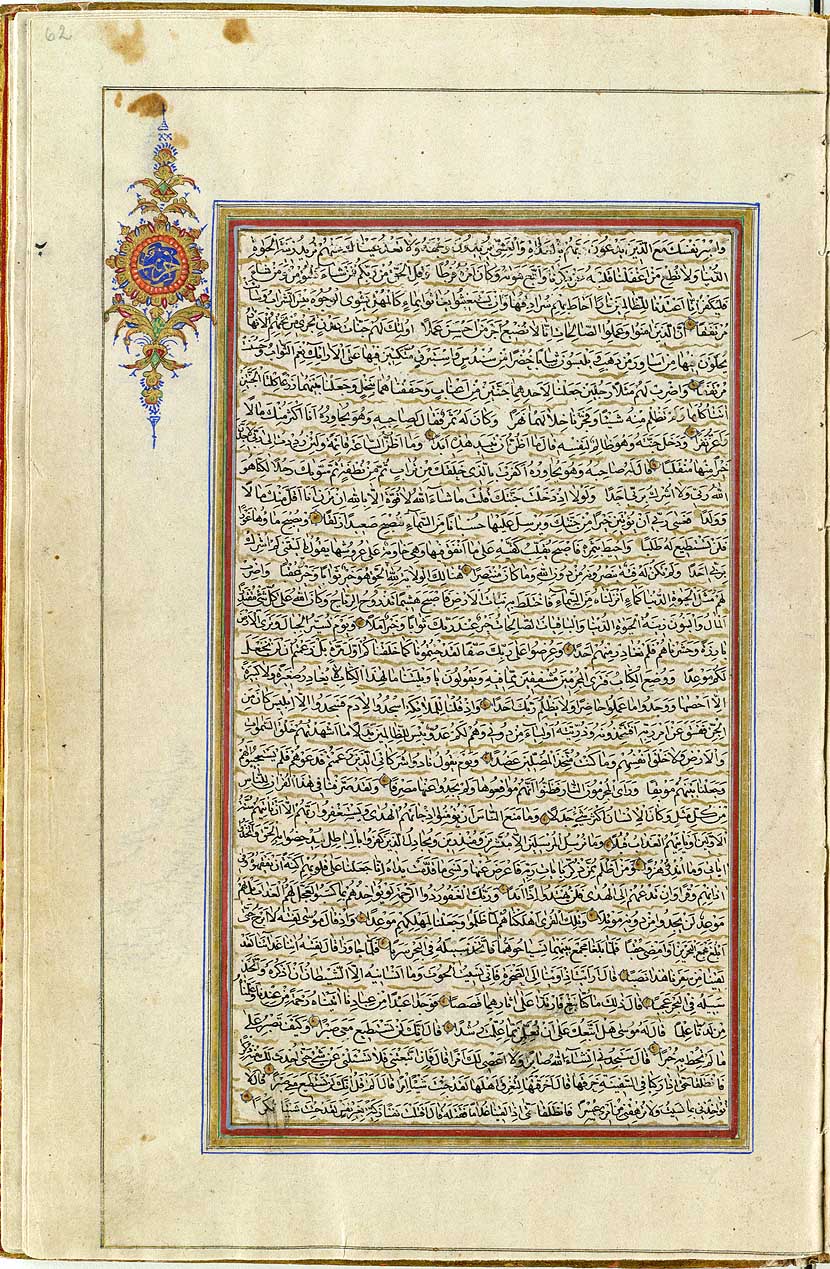 حزب
واصبر نفسك مع الذين يدعون ربهم بالغداوة والعشي يريدون وجهه ولا تعد عيناك عنهم تريد زينة الحيوة
الدنيا ولا تطع من اغفلنا قلبه عن ذكرنا واتبع هويه وكان امره فرطا وقل الحق من ربكم فمن شاء فليؤمن ومن شاء
فليكفر انا اعتدنا للظالمين نارا احاط بهم سرادقها وان يستغيثوا يغاثوا بماء كالمهل يشوي الوجوه بئس الشراب وساءت
مرتفقا ان الذين امنوا وعملوا الصالحات انا لا نضيع اجر من احسن عملا اولئك لهم جنات عدن تجري من تحتهم الانهار
يحلون فيها من اساور من ذهب ويلبسون ثيابا خضرا من سندس واستبرق متكئين فيها على الارائك نعم الثواب وحسنت
مرتفقا واضرب لهم مثلا رجلين جعلنا لاحدهما جنتين من اعناب وحففناهما بنخل وجعلنا بينهما زرعا كلتا الجنتين
اتت اكلها ولم تظلم منه شيئا وفجرنا خلالهما نهرا وكان له ثمر فقال لصاحبه وهو يحاوره انا اكثر منك مالا
واعز نفرا ودخل جنته وهو ظالم لنفسه قال ما اظن ان تبيد هذه ابدا وما اظن الساعة قائمة ولئن رددت الى ربي لاجدن
خيرا منها منقلبا قال له صاحبه وهو يحاوره اكفرت بالذي خلقك من تراب ثم من نطفة ثم سويك رجلا لكنا هو
الله ربي ولا اشرك بربي احدا ولولا اذ دخلت جنتك قلت ما شاء الله لا قوة الا بالله ان ترن انا اقل منك مالا
وولدا فعسى ربي ان يؤتين خيرا من جنتك ويرسل عليها حسبانا من السماء فتصبح صعيدا زلقا او يصبح ماؤها غورا
فلن تستطيع له طلبا واحيط بثمره فاصبح يقلب كفيه على ما انفق فيها وهي خاوية على عروشها ويقول يا ليتني لم اشرك
بربي احدا ولم تكن له فئة ينصرونه من دون الله وما كان منتصرا هنالك الولاية لله الحق هو خير ثوابا وخير عقبا واضرب
لهم مثل الحيوة الدنيا كماء انزلناه من السماء فاختلط به نبات الارض فاصبح هشيما تذروه الرياح وكان الله على كل شيء مقتدرا
المال والبنون زينة الحيوة الدنيا والباقيات الصالحات خير عند ربك ثوابا وخير املا ويوم نسير الجبال وترى الارض
بارزة وحشرناهم فلم نغادر منهم احدا وعرضوا على ربك صفا لقد جئتمونا كما خلقناكم اول مرة بل زعمتم ان لن نجعل
لكم موعدا ووضع الكتاب فترى المجرمين مشفقين مما فيه ويقولون يا ويلتنا مال هذا الكتاب لا يغادر صغيرة ولا كبيرة
الا احصيها ووجدوا ما عملوا حاضرا ولا يظلم ربك احدا واذ قلنا للملائكة اسجدوا لادم فسجدوا الا ابليس كان من
الجن ففسق عن امر ربه افتتخذونه وذريته اولياء من دوني وهم لكم عدو بئس للظالمين بدلا ما اشهدتهم خلق السموات
والارض ولا خلق انفسهم وما كنت متخذ المضلين عضدا ويوم يقول نادوا شركائي الذين زعمتم فدعوهم فلم يستجيبوا لهم
وجعلنا بينهم موبقا وراى المجرمون النار فظنوا انهم مواقعوها ولم يجدوا عنها مصرفا ولقد صرفنا في هذا القران للناس
من كل مثل وكان الانسان اكثر شيء جدلا وما منع الناس ان يؤمنوا اذ جاءهم الهدى ويستغفروا ربهم الا ان تاتيهم سنة
الاولين او ياتيهم العذاب قبلا وما نرسل المرسلين الا مبشرين ومنذرين ويجادل الذين كفروا بالباطل ليدحضوا به الحق واتخذوا
اياتي وما انذروا هزوا ومن اظلم ممن ذكر بايات ربه فاعرض عنها ونسي ما قدمت يداه انا جعلنا على قلوبهم اكنة ان يفقهوه وفي
اذانهم وقرا وان تدعهم الى الهدى فلن يهتدوا اذا ابدا وربك الغفور ذو الرحمة لو يؤاخذهم بما كسبوا لعجل لهم العذاب بل لهم
موعد لن يجدوا من دونه موئلا وتلك القرى اهلكناهم لما ظلموا وجعلنا لمهلكهم موعدا واذ قال موسى لفتيه لا ابرح حتى
ابلغ مجمع البحرين او امضي حقبا فلما بلغا مجمع بينهما نسيا حوتهما فاتخذ سبيله في البحر سربا فلما جاوزا قال لفتيه اتنا غداءنا لقد
لقينا من سفرنا هذا نصبا قال ارايت اذ اوينا الى الصخرة فاني نسيت الحوت وما انسانيه الا الشيطان ان اذكره واتخذ
سبيله في البحر عجبا قال ذلك ما كنا نبغ فارتدا على اثارهما قصصا فوجدا عبدا من عبادنا اتيناه رحمة من عندنا وعلمناه
من لدنا علما قال له موسى هل اتبعك على ان تعلمن مما علمت رشدا قال انك لن تستطيع معي صبرا وكيف تصبر على
ما لم تحط به خبرا قال ستجدني ان شاء الله صابرا ولا اعصي لك امرا قال فان اتبعتني فلا تسئلني عن شيء حتى احدث لك منه ذكرا
فانطلقا حتى اذا ركبا في السفينة خرقها قال اخرقتها لتغرق اهلها لقد جئت شيئا امرا قال الم اقل انك لن تستطيع معي صبرا قال لا
تؤاخذني بما نسيت ولا ترهقني من امري عسرا فانطلقا حتى اذا لقيا غلاما فقتله قال اقتلت نفسا زكية بغير نفس لقد جئت شيئا نكرا
62